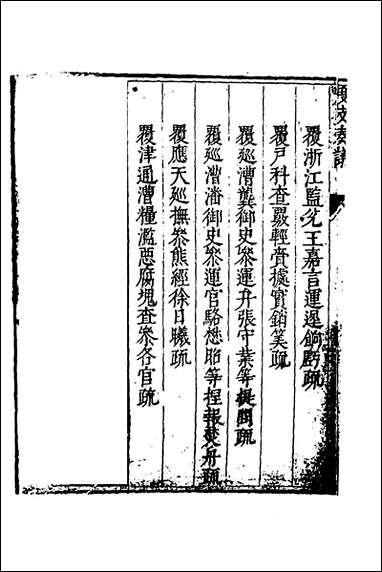 覆浙江監兌王嘉言運遲餉虧疏
覆戶科查覈輕賫據實銷筭疏
覆廵漕龔御史叅運弁張守業等提問疏
覆廵漕潘御史叅運官駱懋昭等捏報焚舟疏
覆應天廵撫叅熊經徐日曦疏
覆津通漕糧濫惡腐塊查叅各官疏